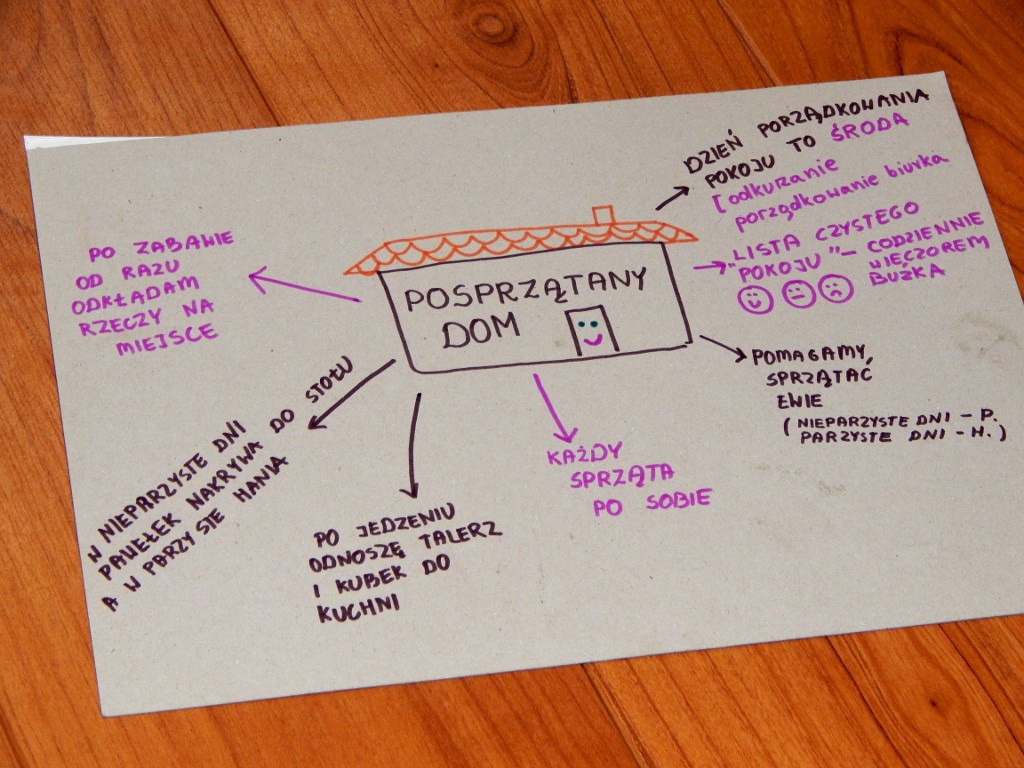 POSPRZĄTANY
DOM
DZIEŃ PORZĄDKOWANIA
POKOJU TO ŚRODA
[odkurzanie
porządkowanie biurka
"LISTA CZYSTEGO
POKOJU" – CODZIENNIE
WIECZOREM
BUŹKA
POMAGAMY
SPRZĄTAĆ
EWIE
(NIEPARZYSTE DNI – P.
PARZYSTE DNI – H.)
KAŻDY
SPRZĄTA
PO SOBIE
PO JEDZENIU
ODNOSZĘ TALERZ
I KUBEK DO
KUCHNI
W NIEPARZYSTE DNI
PAWEŁEK NAKRYWA DO STOŁU
A W PARZYSTE HANIA
PO ZABAWIE
OD RAZU
ODKŁADAM
RZECZY NA
MIEJSCE